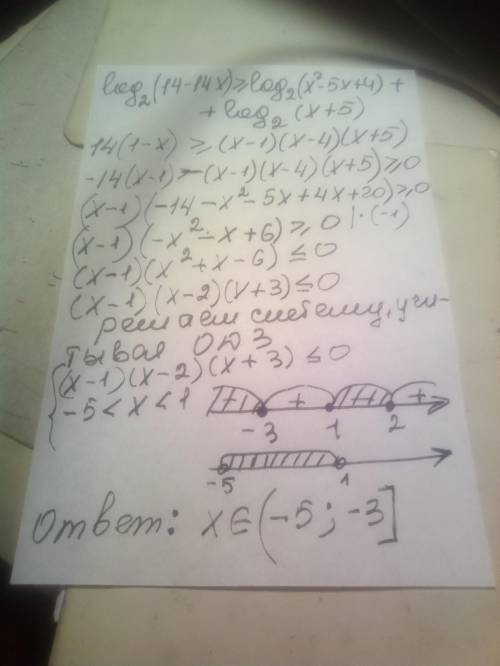 log₂(14-14x)≥log₂(x²-5x+4)+
+log₂(x+5)
14(1-x) ≥ (x-1)(x-4)(x+5)
-14(x-1)-(x-1)(x-4)(x+5)≥0
(x-1)(-14-x²-5x+4x+20)≥0
(x-1)(-x²-x+6)≥0 |·(-1)
(x-1)(x²+x-6)≤0
(x-1)(x-2)(x+3)≤0
решаем систему, учи-
тывая ОДЗ
{(x-1)(x-2)(x+3)≤0
-5<x<1
-3 1 2
-5 1
Ответ: x∈(-5;-3]